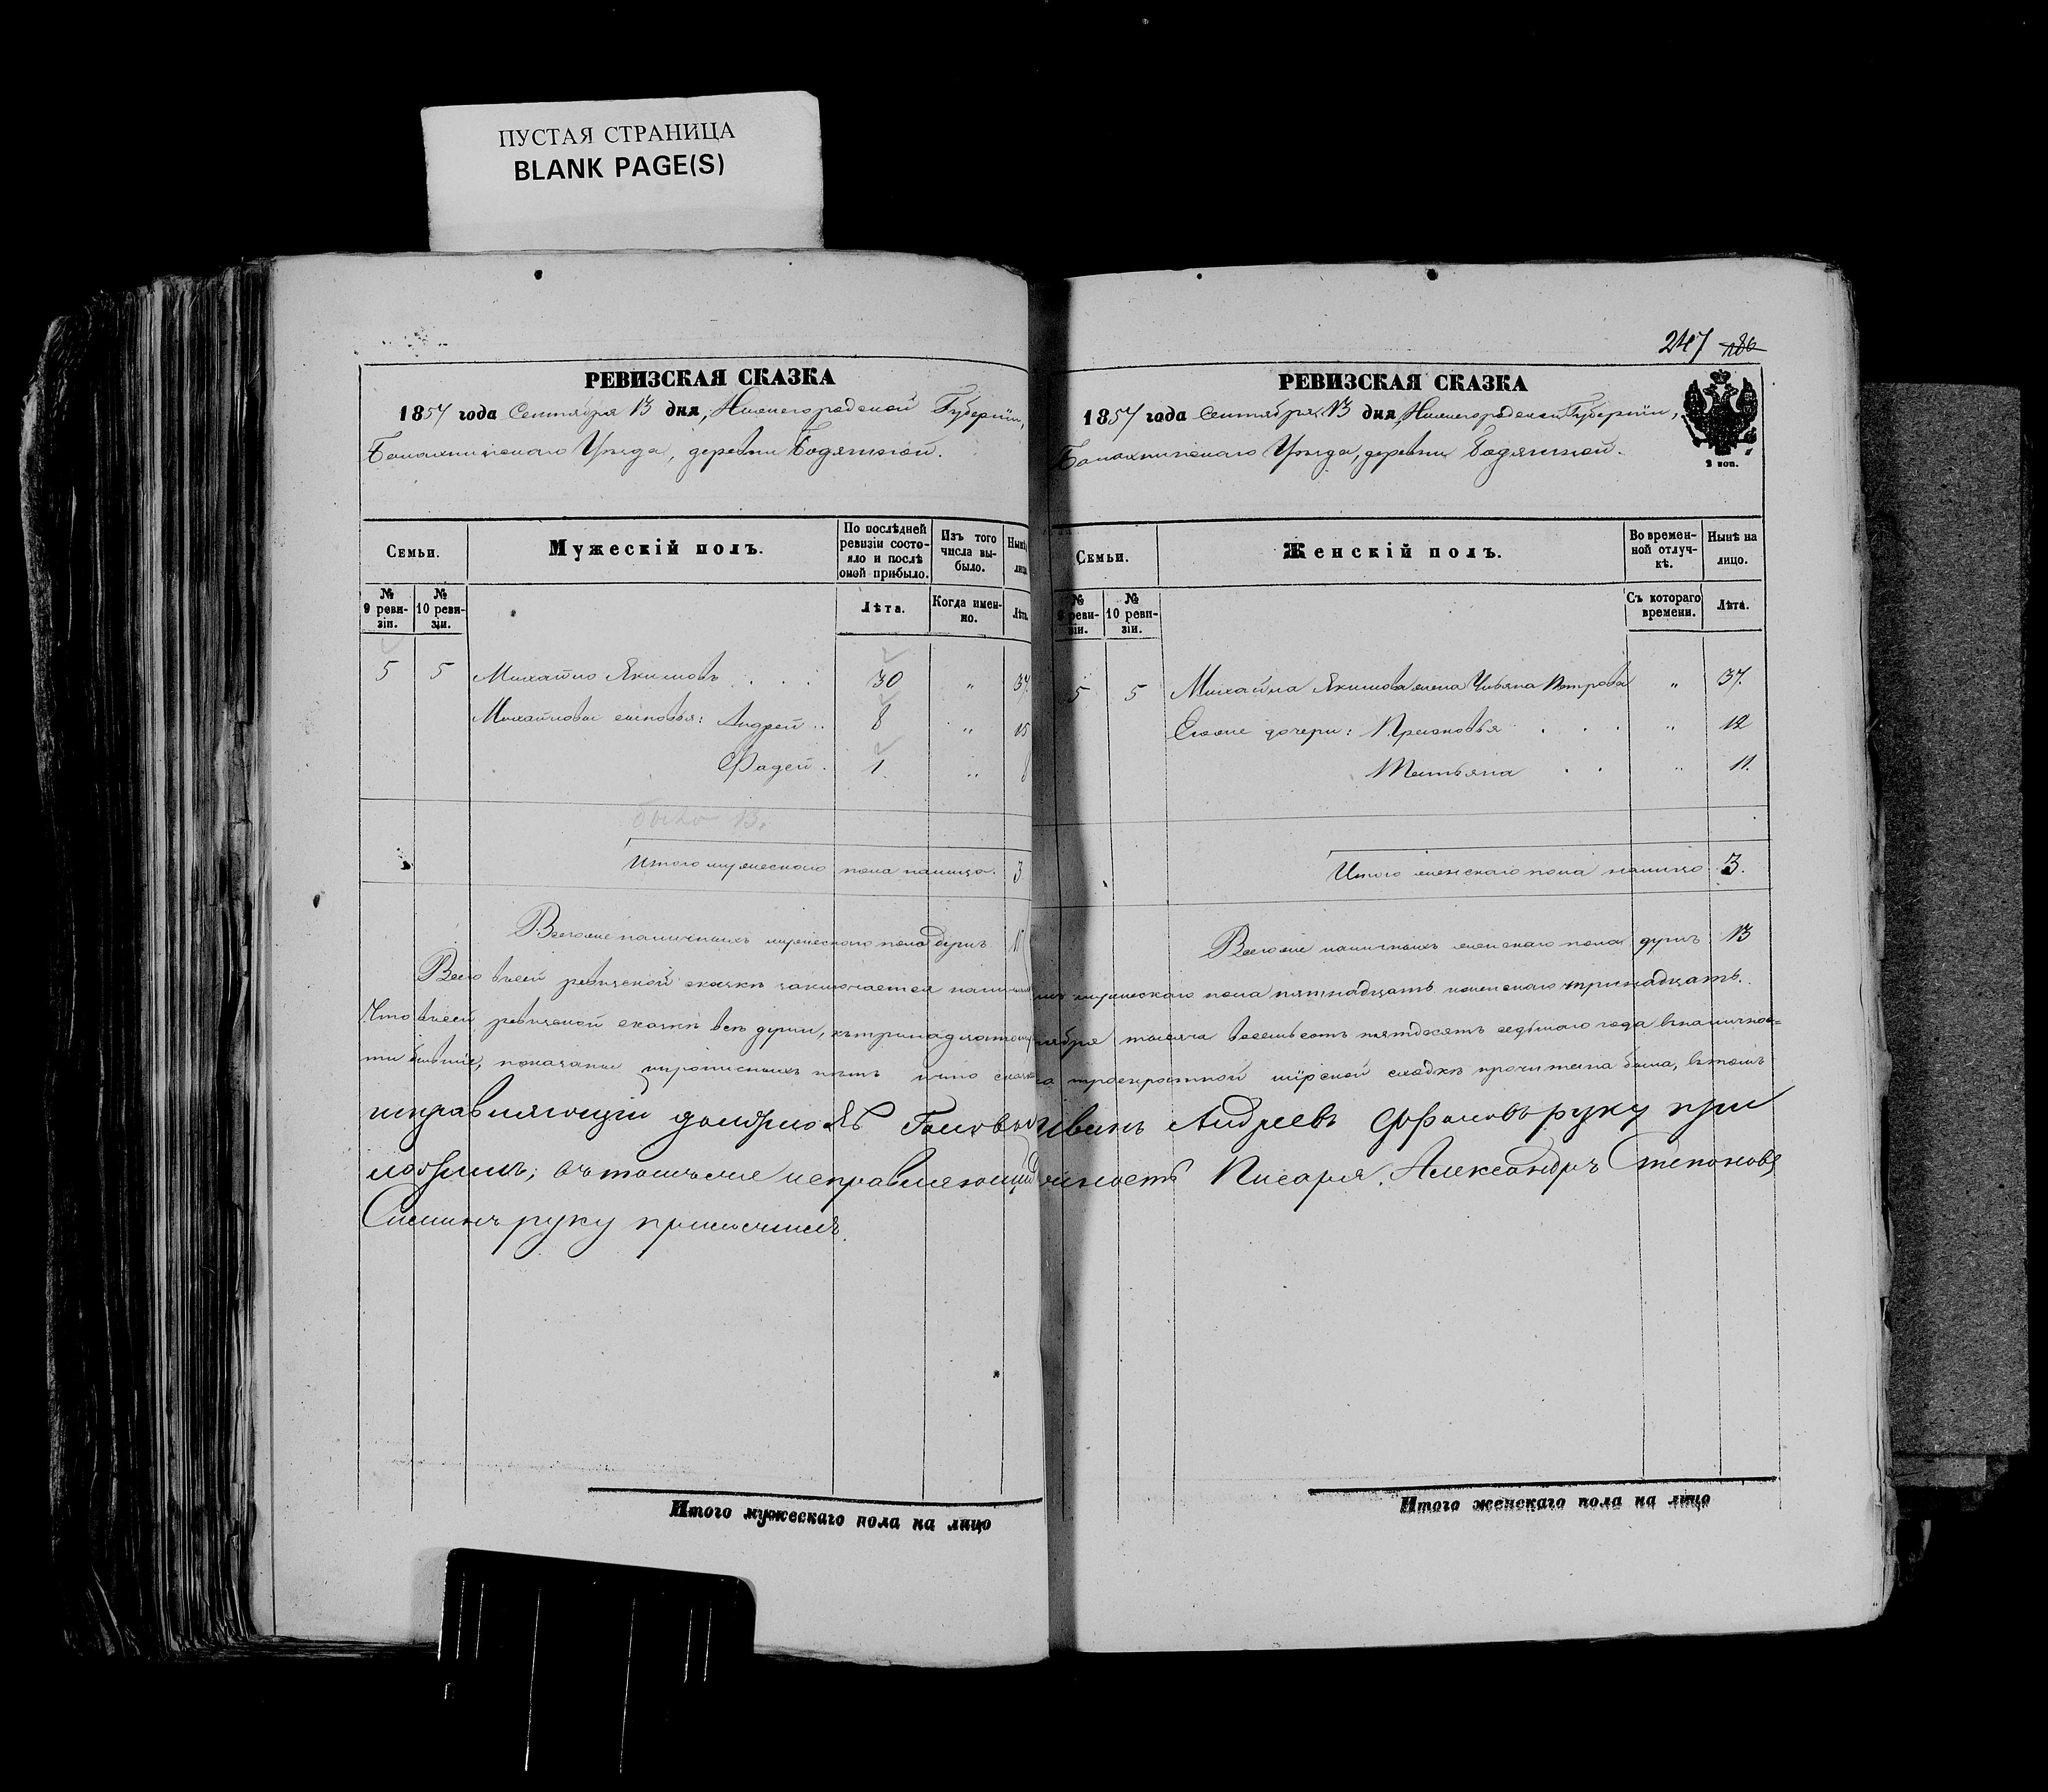 ПУСТАЯ СТРАНИЦА
BLANK PAGE(S)
РЕВИЗСКАЯ СКАЗКА
1857 года Сентября 13 дня, Нижегородской Губерніи,
Балахнинскаго Уѣзда, деревни
Семьи.
Мужескій полъ.
По послѣдней ревизіи состояло и послѣ оной прибыло.
Изъ того числа выбыло.
Нынѣ
лицо
№ 9 ревизіи.
№ 10 ревизіи.
Лѣта.
Когда именно.
Лѣта.
5 5 Михайло Якимовъ 30 " 37.
Михайловы сыновья: Андрей 8 " 15
Фадей 1. " 8
было 13.
Итого мужескаго пола налицо. 3
Всего же наличныхъ мужескаго пола душъ
247 186
РЕВИЗСКАЯ СКАЗКА
1857 года Сентября 13 дня, Нижегородской Губерніи,
Балахнинскаго Уѣзда, деревни
Семьи.
Женскій полъ.
Во временной отлучкѣ.
Нынѣ на лицо.
№ 9 ревизіи.
№ 10 ревизіи.
Съ котораго времени.
Лѣта.
5 5 Михайла Якимова жена Ульяна Петрова " 37.
Его же дочери: Прасковья " 12
Татьяна " 11.
Итого женскаго пола налицо 3.
Всего же наличныхъ женскаго пола душъ 13
Всего в сей ревизской сказкѣ заключается наличныхъ мужескаго пола пятнадцать женскаго тринадцать.
Что в сей ревизской сказкѣ всѣ души, къ тринадцатому сентября тысяча восемьсотъ пятдесятъ седьмаго года в налично-
сти бывшіе, показаны и прописныхъ нѣтъ и что сказка на мірской сходкѣ прочитана была, в томъ
исправляющій должность Головы Иванъ Андреевъ руку при
ложилъ; въ томъ же исправляющій должность Писаря Александръ Степановъ
руку приложилъ.
Итого мужескаго пола на лицо
Итого женскаго пола на лицо